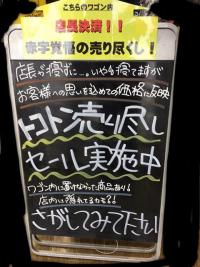 こちらのワゴン内
店長決済!!
赤字覚悟の売り尽くし!
店長が寝ずに…。いや今寝てますが
お客様への思いを込めての価格に反映
トコトン売り尽し
セール実施中
ワゴン内に書けなかった商品あり!
店内に隠れてるカモ??
さがしてみて下さい